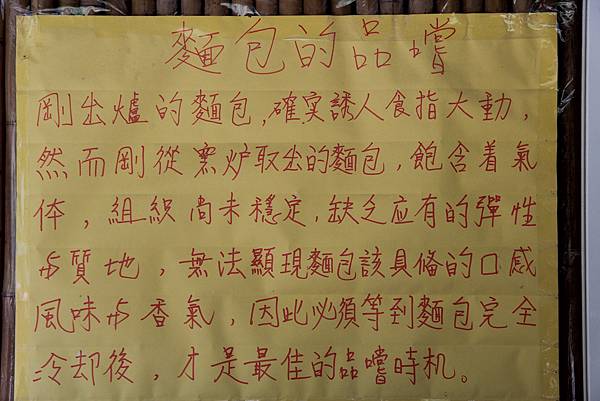 麵包的品嚐
剛出爐的麵包,確实誘人食指大動,
然而剛從窯炉取出的麵包,飽含着氣
体,組織尚未穩定,缺乏应有的彈性
与質地,無法顯現麵包該具备的口感
風味与香氣,因此必須等到麵包完全
冷却後,才是最佳的品嚐時机。